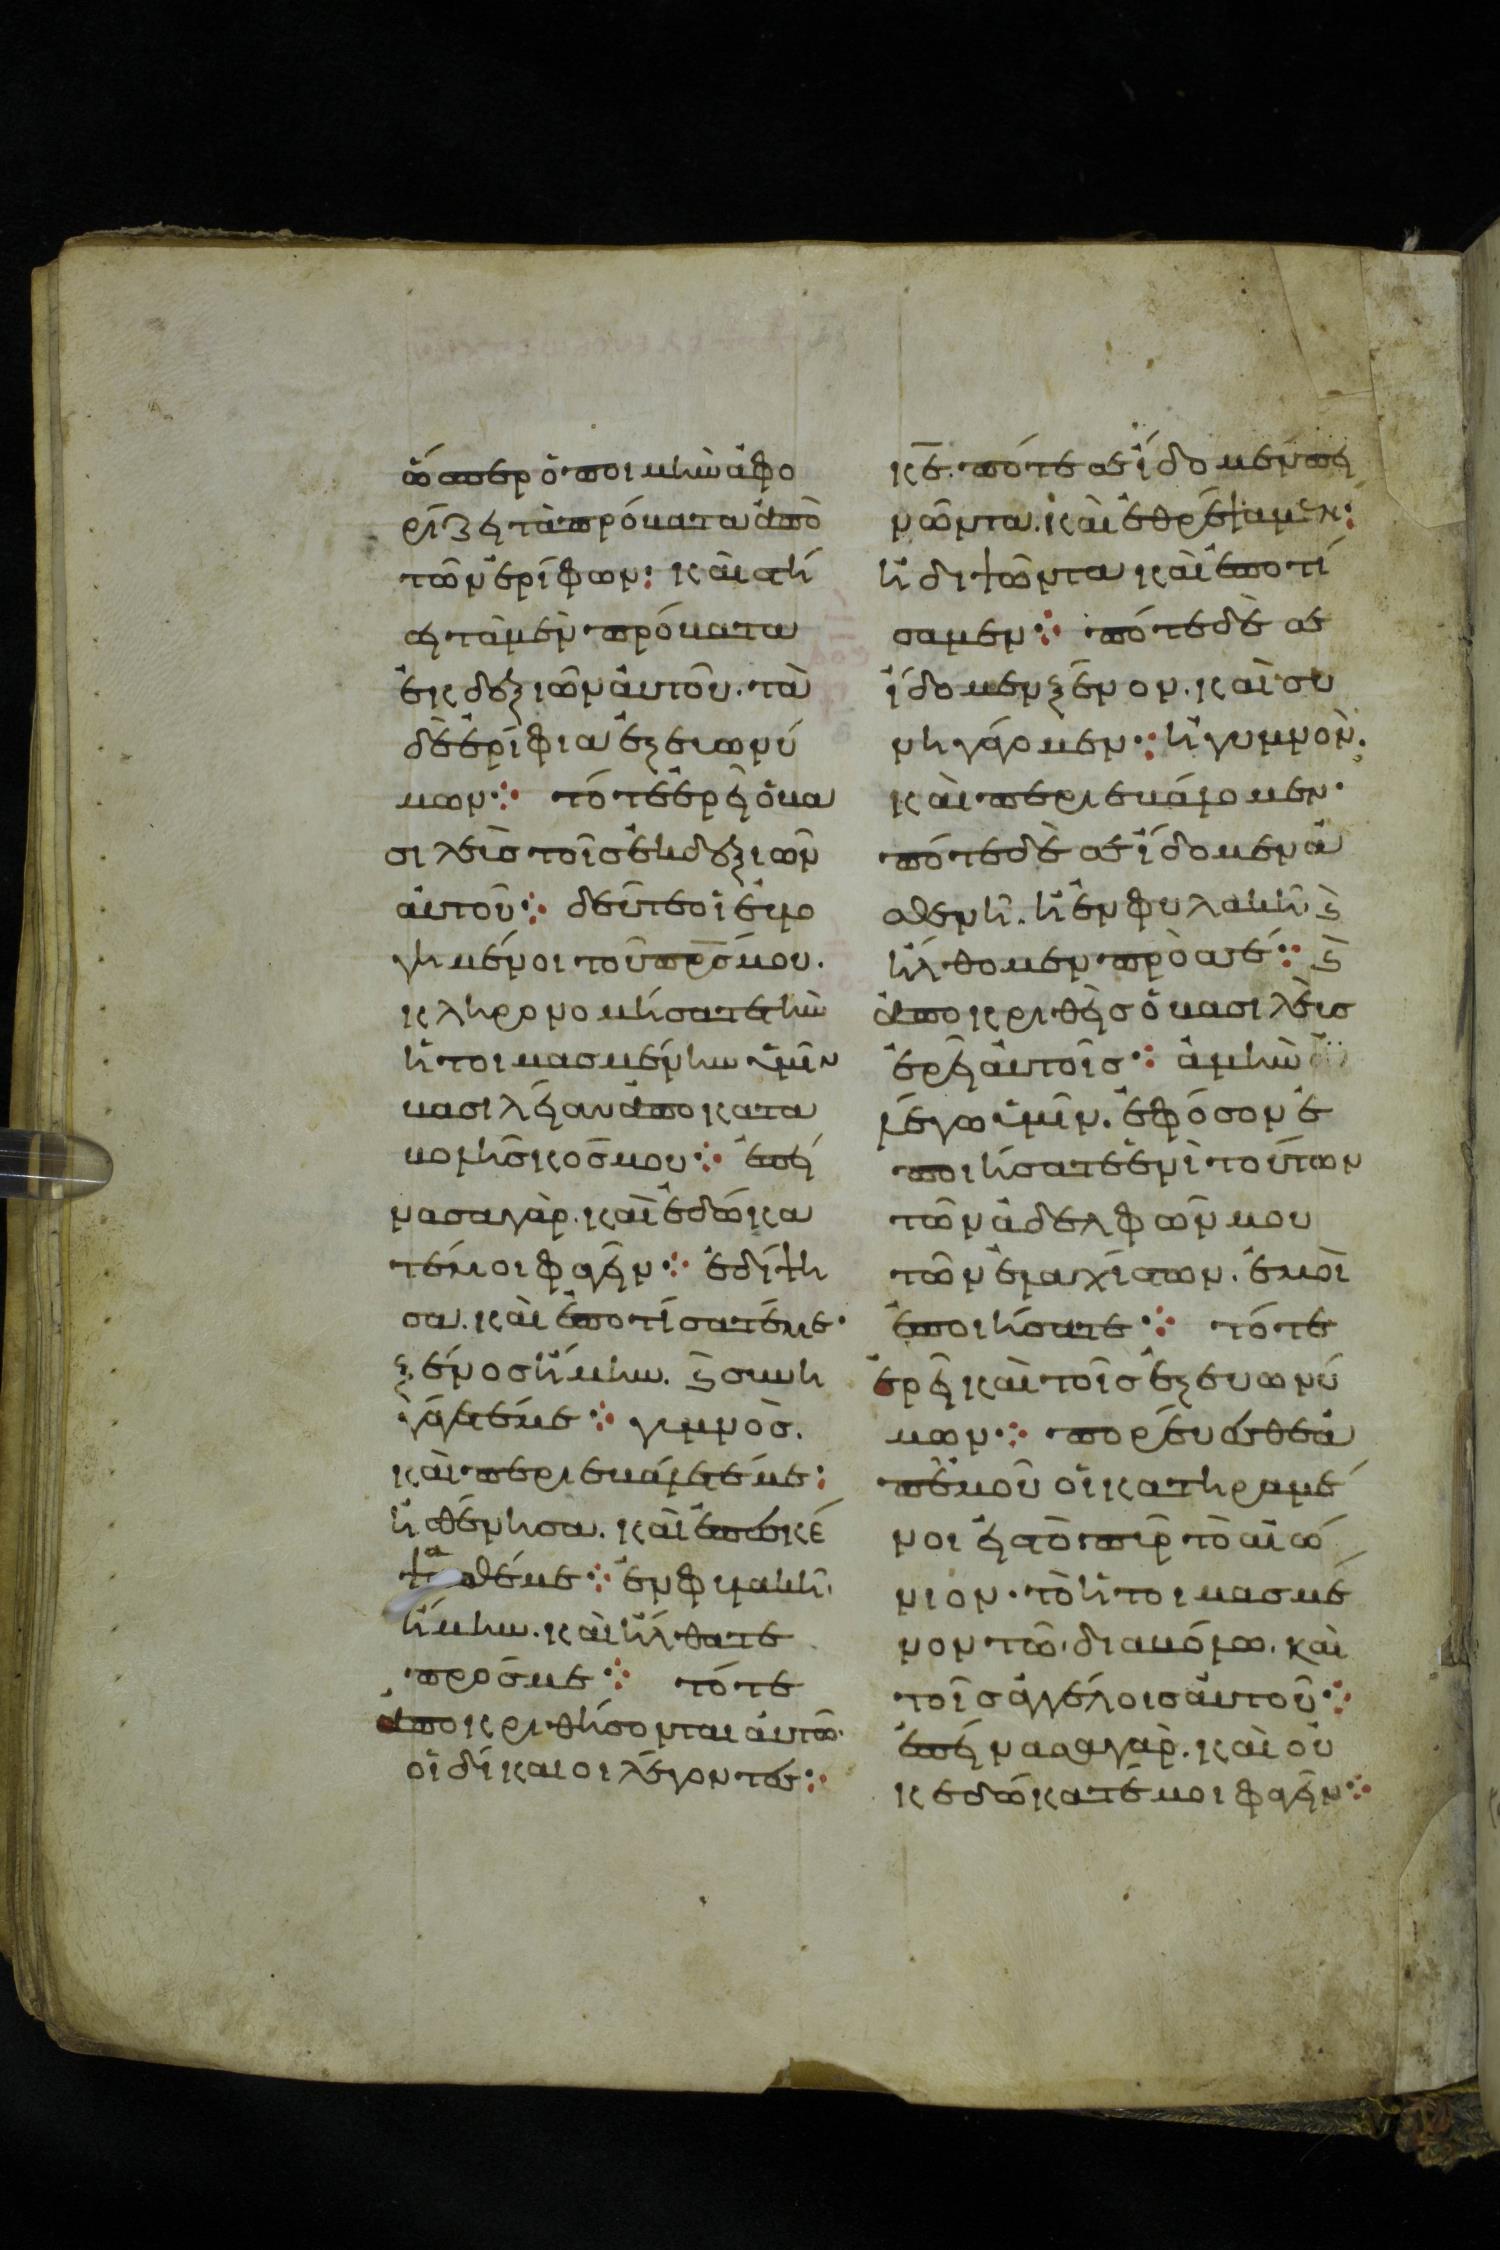 ὥσπερ ὁ ποιμὴν ἀφο
ρίζει τὰ πρόβατα ἀπὸ
τῶν ἐρίφων: καὶ στή
σει τὰ μὲν πρόβατα
ἐκ δεξιῶν αὐτοῦ. τὰ
δὲ ἐρίφια ἐξ εὐωνύ
μων⁘ τότε ἐρεῖ ὁ βα
σιλεὺς τοῖς ἐκ δεξιῶν
αὐτοῦ⁘ δεῦτε οἱ εὐλο
γημένοι τοῦ π̅ρ̅σ̅ μου.
κληρονομήσατε τὴν
ἡτοιμασμένην ὑμῖν
βασιλείαν ἀπὸ κατα
βολῆς κόσμου⁘ ἐπεί
νασα γὰρ. καὶ ἐδώκα
τέ μοι φαγεῖν⁘ ἐδίψη
σα. καὶ ἐποτίσατέ με·
ξένος ἤμην. ϗ συνη
γάγετέ με⁘ γυμνὸς.
καὶ περιεβάλετέ με:
ἠσθένησα. καὶ ἐπεσκέ
ψασθέ με⁘ ἐν φυλακῆ
ἤμην. καὶ ἤλθατε
πρός με⁘ τότε
ἀποκριθήσονται αὐτῶ.
οἱ δίκαιοι λέγοντες⁘
κ̅ε̅. πότε σε ἴδομεν πει
νῶντα. καὶ ἐθρέψαμεν:
ἢ διψῶντα καὶ ἐποτί
σαμεν⁘ πότε δὲ σε
ἴδομεν ξένον. καὶ συ
νηγάγομεν⁘ ἢ γυμνὸν.
καὶ περιεβάλομεν·
πότε δὲ σε ἴδομεν ἀ
σθενῆ. ἢ ἐν φυλακῆ ϗ
ἤλθομεν πρός σε⁘ ϗ
ἀποκριθεὶς ὁ βασιλεὺς
ἐρεῖ αὐτοῖς⁘ ἀμὴν
λέγω ὑμῖν. ἐφόσον ἐ
ποιήσατε ἑνὶ τούτων
τῶν ἀδελφῶν μου
τῶν ἐλαχίστων. ἐμοὶ
ἐποιήσατε⁘ τότε
ἐρεῖ καὶ τοῖς ἐξ εὐωνύ
μων⁘ πορεύεσθε ἀ
π᾿ ἐμοῦ οἱ κατηραμέ
νοι εἰς τὸ πῦρ τὸ αἰώ
νιον. τὸ ἡτοιμασμέ
νον τῶ διαβόλω. καὶ
τοῖς ἀγγέλοις αὐτοῦ⁘
ἐπείνασα γὰρ. καὶ οὐ
κ ἐδώκατέ μοι φαγεῖν⁘